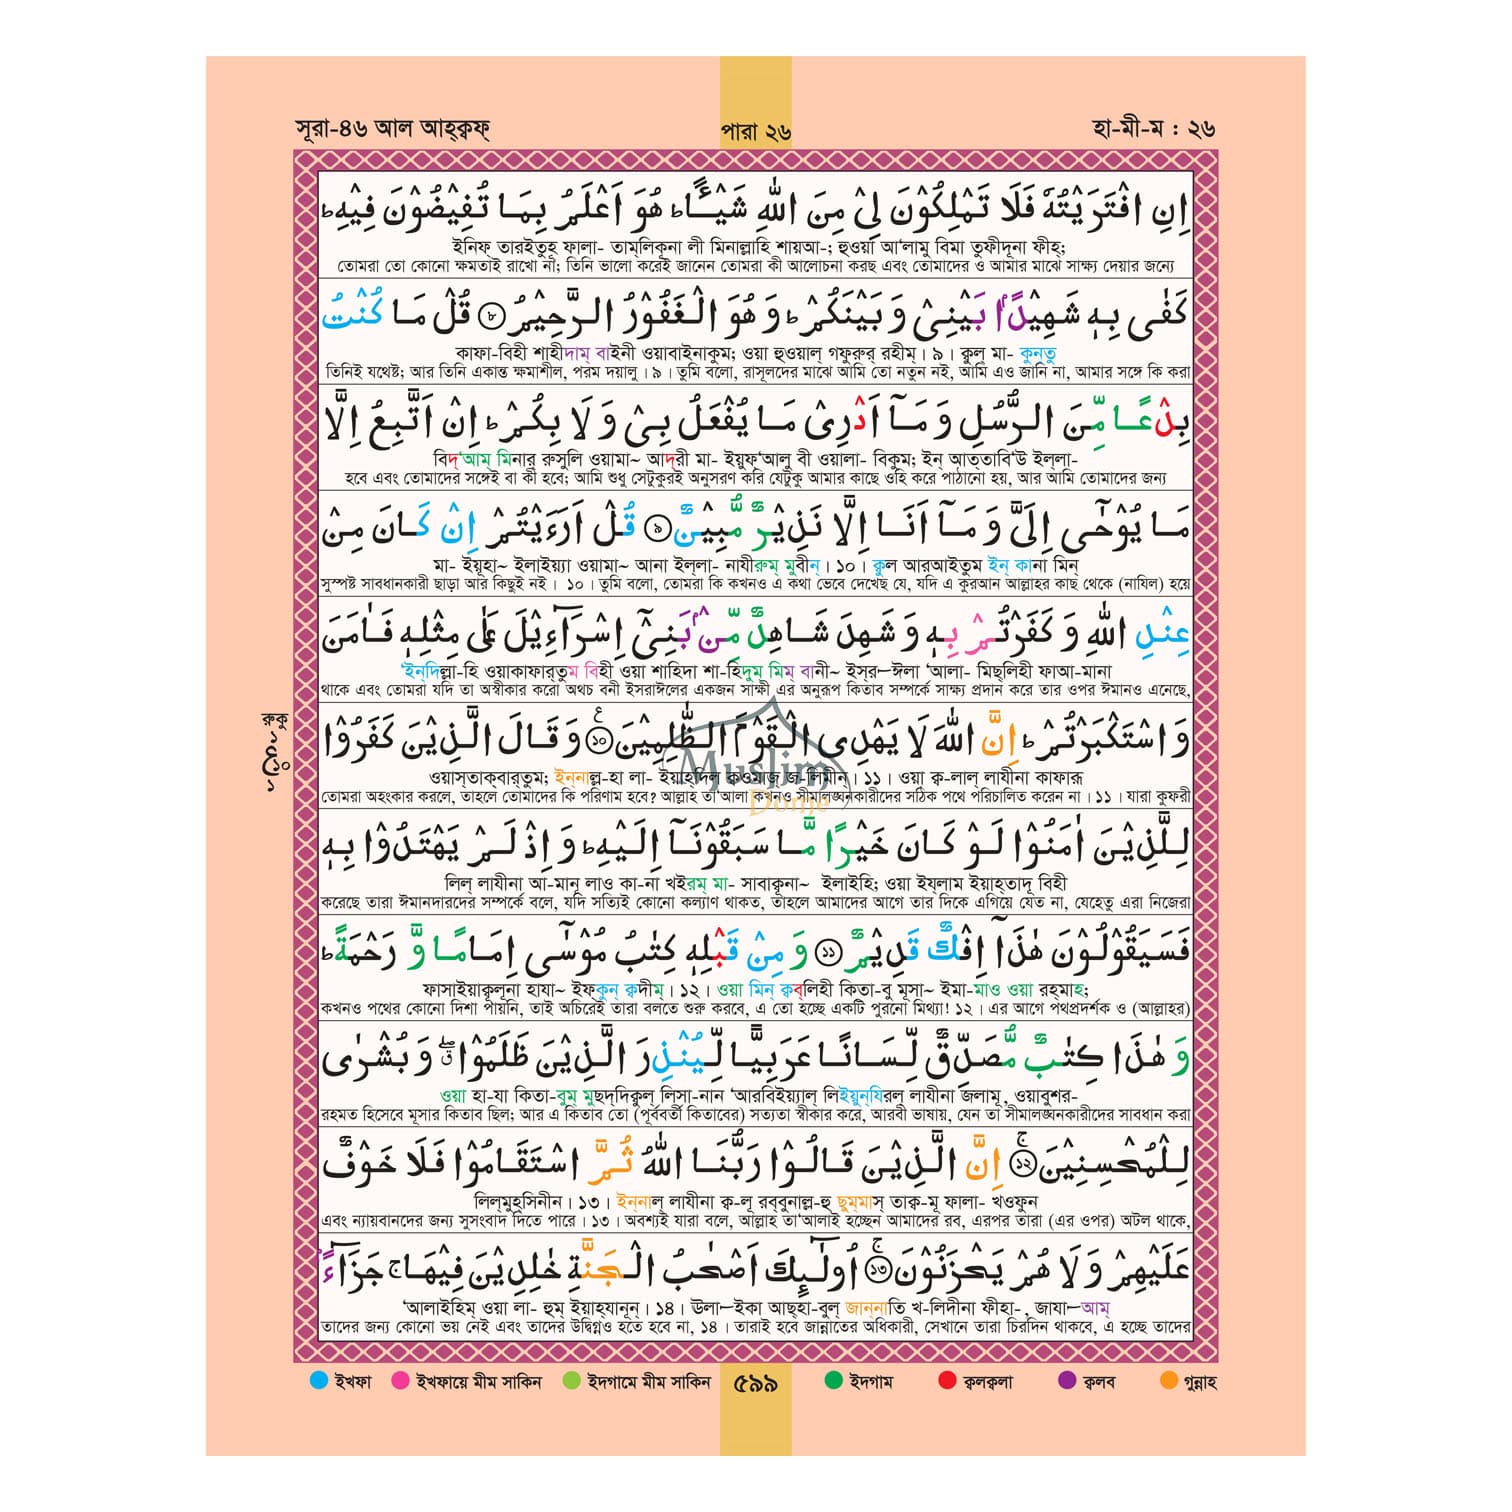 সূরা-৪৬ আল আহ্ক্বফ্
পারা ২৬
হা-মী-ম : ২৬
اِنِ افْتَرَيْتُهٗ فَلَا تَمْلِكُوْنَ لِىْ مِنَ اللّٰهِ شَيْـًٔا ؕ هُوَ اَعْلَمُ بِمَا تُفِيْضُوْنَ فِيْهِ ؕ
ইনিফ্ তারইতুহূ ফালা- তাম্লিকূনা লী মিনাল্লাহি শায়আ-; হুওয়া আ'লামু বিমা তুফীদূনা ফীহ্;
তোমরা তো কোনো ক্ষমতাই রাখো না; তিনি ভালো করেই জানেন তোমরা কী আলোচনা করছ এবং তোমাদের ও আমার মাঝে সাক্ষ্য দেয়ার জন্যে
كَفٰى بِهٖ شَهِيْدًۢا بَيْنِىْ وَ بَيْنَكُمْ ؕ وَ هُوَ الْغَفُوْرُ الرَّحِيْمُ ۝٨ قُلْ مَا كُنْتُ
কাফা-বিহী শাহীদাম্ বাইনী ওয়াবাইনাকুম; ওয়া হুওয়াল্ গফুরুর্ রহীম্। ৯। ক্বুল্ মা- কুনতু
তিনিই যথেষ্ট; আর তিনি একান্ত ক্ষমাশীল, পরম দয়ালু। ৯। তুমি বলো, রাসূলদের মাঝে আমি তো নতুন নই, আমি এও জানি না, আমার সঙ্গে কি করা
بِدْعًا مِّنَ الرُّسُلِ وَ مَاۤ اَدْرِىْ مَا يُفْعَلُ بِىْ وَ لَا بِكُمْ ؕ اِنْ اَتَّبِعُ اِلَّا
বিদ্'আম্ মিনার্ রুসুলি ওয়ামা~ আদ্রী মা- ইয়ুফ্'আলু বী ওয়ালা- বিকুম; ইন্ আত্তাবি'উ ইল্লা-
হবে এবং তোমাদের সঙ্গেই বা কী হবে; আমি শুধু সেটুকুরই অনুসরণ করি যেটুকু আমার কাছে ওহি করে পাঠানো হয়, আর আমি তোমাদের জন্য
مَا يُوْحٰٓى اِلَىَّ وَ مَاۤ اَنَا اِلَّا نَذِيْرٌ مُّبِيْنٌ ۝٩ قُلْ اَرَءَيْتُمْ اِنْ كَانَ مِنْ
মা- ইয়ূহা~ ইলাইয়্যা ওয়ামা~ আনা ইল্লা- নাযীরুম্ মুবীন্। ১০। ক্বুল আরআইতুম ইন্ কানা মিন্
সুস্পষ্ট সাবধানকারী ছাড়া আর কিছুই নই। ১০। তুমি বলো, তোমরা কি কখনও এ কথা ভেবে দেখেছ যে, যদি এ কুরআন আল্লাহর কাছ থেকে (নাযিল) হয়ে
عِنْدِ اللّٰهِ وَ كَفَرْتُمْ بِهٖ وَ شَهِدَ شَاهِدٌ مِّنْۢ بَنِىْۤ اِسْرَآءِيْلَ عَلٰى مِثْلِهٖ فَاٰمَنَ
'ইন্দিল্লা-হি ওয়াকাফার্তুম বিহী ওয়া শাহিদা শা-হিদুম্ মিম্ বানী~ ইস্র—ঈলা 'আলা- মিছ্লিহী ফাআ-মানা
থাকে এবং তোমরা যদি তা অস্বীকার করো অথচ বনী ইসরাঈলের একজন সাক্ষী এর অনুরূপ কিতাব সম্পর্কে সাক্ষ্য প্রদান করে তার ওপর ঈমানও এনেছে,
وَ اسْتَكْبَرْتُمْ ؕ اِنَّ اللّٰهَ لَا يَهْدِى الْقَوْمَ الظّٰلِمِيْنَ ۝١٠ وَ قَالَ الَّذِيْنَ كَفَرُوْا
রুকু
Muslim Dome
ওয়াস্তাক্বার্তুম; ইন্নাল্ল-হা লা- ইয়াহ্দিল্ ক্বওমাজ্ জ-লিমীন্। ১১। ওয়া ক্ব-লাল্ লাযীনা কাফারূ
তোমরা অহংকার করলে, তাহলে তোমাদের কি পরিণাম হবে? আল্লাহ তা'আলা কখনও সীমালঙ্ঘনকারীদের সঠিক পথে পরিচালিত করেন না। ১১। যারা কুফরী
لِلَّذِيْنَ اٰمَنُوْا لَوْ كَانَ خَيْرًا مَّا سَبَقُوْنَاۤ اِلَيْهِ ؕ وَ اِذْ لَمْ يَهْتَدُوْا بِهٖ
লিল্ লাযীনা আ-মানূ লাও কা-না খইরম্ মা- সাবাক্বূনা~ ইলাইহি; ওয়া ইয্লাম ইয়াহ্তাদূ বিহী
করেছে তারা ঈমানদারদের সম্পর্কে বলে, যদি সত্যিই কোনো কল্যাণ থাকত, তাহলে আমাদের আগে তার দিকে এগিয়ে যেত না, যেহেতু এরা নিজেরা
فَسَيَقُوْلُوْنَ هٰذَاۤ اِفْكٌ قَدِيْمٌ ۝١١ وَ مِنْ قَبْلِهٖ كِتٰبُ مُوْسٰٓى اِمَامًا وَّ رَحْمَةً ؕ
ফাসাইয়াক্বূলূনা হাযা~ ইফ্কুন্ ক্বদীম্। ১২। ওয়া মিন্ ক্বব্লিহী কিতা-বু মূসা~ ইমা-মাও ওয়া রহ্মাহ;
কখনও পথের কোনো দিশা পায়নি, তাই অচিরেই তারা বলতে শুরু করবে, এ তো হচ্ছে একটি পুরনো মিথ্যা! ১২। এর আগে পথপ্রদর্শক ও (আল্লাহর)
وَ هٰذَا كِتٰبٌ مُّصَدِّقٌ لِّسَانًا عَرَبِيًّا لِّيُنْذِرَ الَّذِيْنَ ظَلَمُوْا ۖۗ وَ بُشْرٰى
ওয়া হা-যা কিতা-বুম্ মুছদ্দিক্বুল্ লিসা-নান 'আরবিইয়্যাল্ লিইয়ুন্যিরল্ লাযীনা জলামূ, ওয়াবুশর-
রহমত হিসেবে মূসার কিতাব ছিল; আর এ কিতাব তো (পূর্ববর্তী কিতাবের) সত্যতা স্বীকার করে, আরবী ভাষায়, যেন তা সীমালঙ্ঘনকারীদের সাবধান করা
لِلْمُحْسِنِيْنَ ۝١٢ اِنَّ الَّذِيْنَ قَالُوْا رَبُّنَا اللّٰهُ ثُمَّ اسْتَقَامُوْا فَلَا خَوْفٌ
লিল্মুহ্সিনীন। ১৩। ইন্নাল্ লাযীনা ক্ব-লূ রব্বুনাল্ল-হু ছুম্মাস্ তাক্ব-মূ ফালা- খওফুন
এবং ন্যায়বানদের জন্য সুসংবাদ দিতে পারে। ১৩। অবশ্যই যারা বলে, আল্লাহ তা'আলাই হচ্ছেন আমাদের রব, এরপর তারা (এর ওপর) অটল থাকে,
عَلَيْهِمْ وَ لَا هُمْ يَحْزَنُوْنَ ۝١٣ اُولٰٓئِكَ اَصْحٰبُ الْجَنَّةِ خٰلِدِيْنَ فِيْهَا ۚ جَزَآءًۢ
'আলাইহিম্ ওয়া লা- হুম্ ইয়াহ্যানূন্। ১৪। ঊলা—ইকা আছ্হা-বুল্ জান্নাতি খ-লিদীনা ফীহা-, জাযা—আম্
তাদের জন্য কোনো ভয় নেই এবং তাদের উদ্বিগ্নও হতে হবে না, ১৪। তারাই হবে জান্নাতের অধিকারী, সেখানে তারা চিরদিন থাকবে, এ হচ্ছে তাদের
ইখফা
ইখফায়ে মীম সাকিন
ইদগামে মীম সাকিন
৫৯৯
ইদগাম
ক্বলক্বলা
ক্বলব
গুন্নাহ